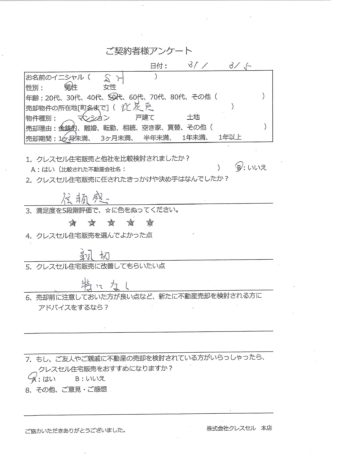 ご契約者様アンケート
日付： 31/ 3/5
お名前のイニシャル（ ）
性別： 男性 女性
年齢：20代、30代、40代、50代、60代、70代、80代、その他（ ）
売却物件の所在地[町名まで]（ ）
物件種別： マンション 戸建て 土地
売却理由：金銭的、離婚、転勤、相続、空き家、買替、その他（ ）
売却期間：1ヶ月未満、 3ヶ月未満、 半年未満、 1年未満、 1年以上
1．クレスセル住宅販売と他社を比較検討されましたか？
A：はい（比較された不動産会社名： ） B：いいえ
2．クレスセル住宅販売に任されたきっかけや決め手はなんでしたか？
信頼感
3．満足度を5段階評価で、☆に色をぬってください。
★ ★ ★ ★ ★
4．クレスセル住宅販売を選んでよかった点
親切
5．クレスセル住宅販売に改善してもらいたい点
特になし
6．売却前に注意しておいた方が良い点など、新たに不動産売却を検討される方に
アドバイスをするなら？
7．もし、ご友人やご親戚に不動産の売却を検討されている方がいらっしゃったら、
クレスセル住宅販売をおすすめになりますか？
A：はい B：いいえ
8．その他、ご意見・ご感想
ご協力いただきありがとうございました。 株式会社クレスセル 本店